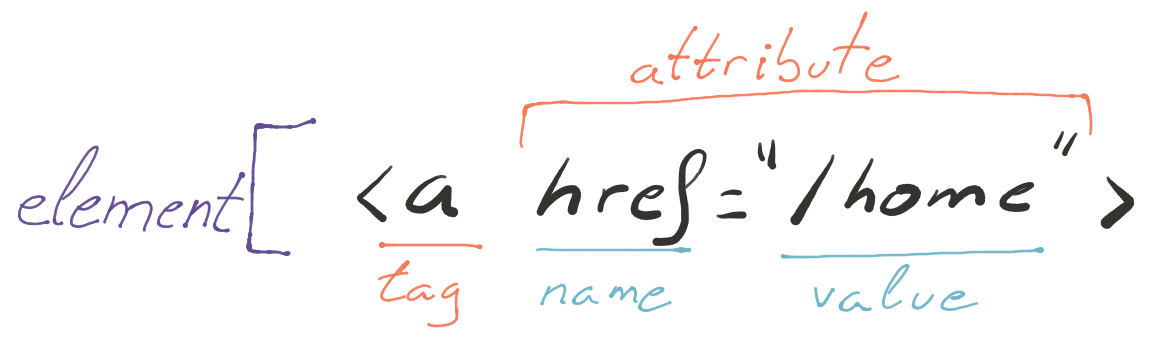 attribute
element <a href="/home">
tag name value